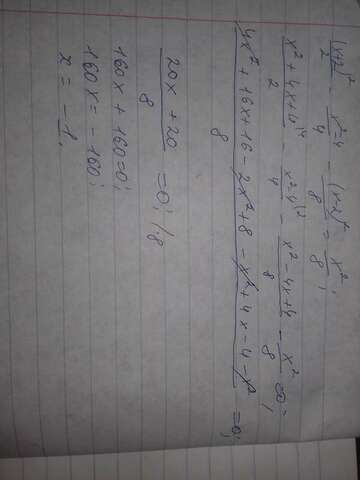 (x+2)²/2 - x²-4/4 - (x-2)²/8 = x²/8;
x²+4x+4|4/2 - x²-4|2/4 - x²-4x+4/8 - x²/8 = 0;
4x²+16x+16-2x²+8-x²+4x-4-x²/8 = 0;
20x+20/8 = 0; /·8
160x+160=0;
160x=-160;
x = -1.